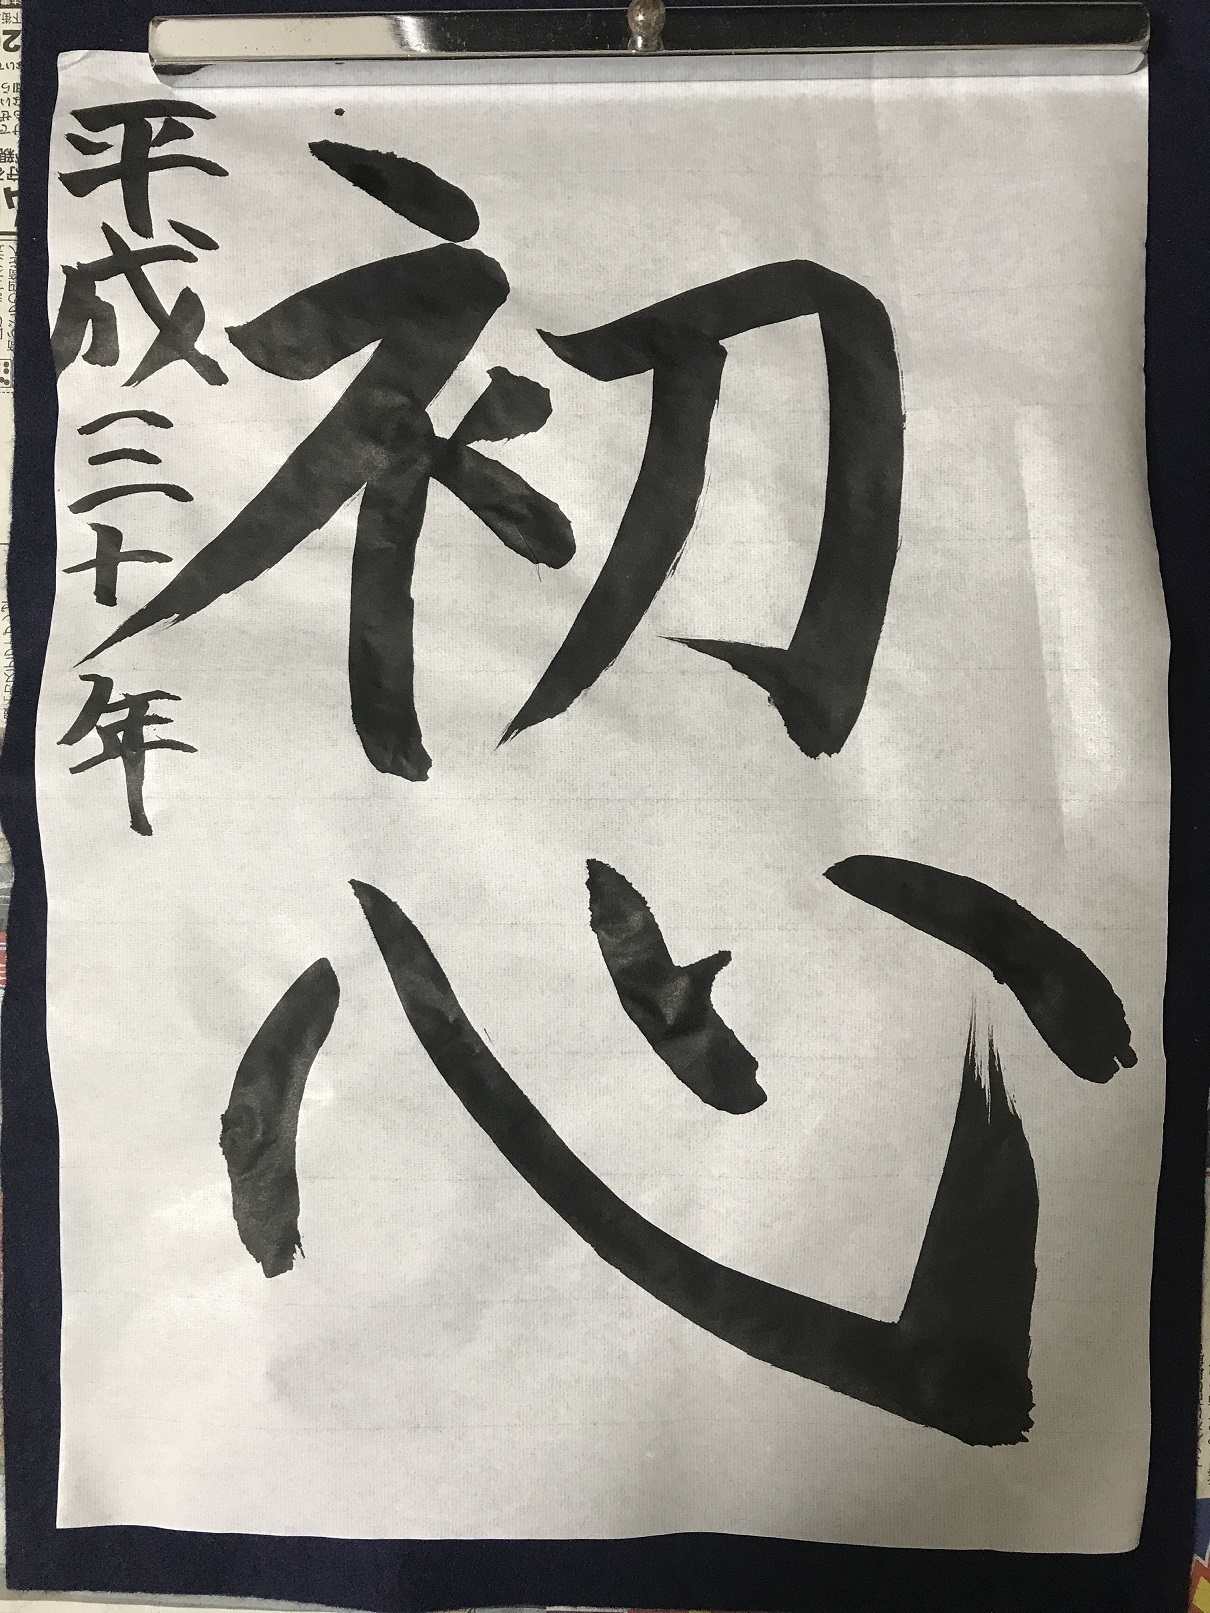 初心
平成三十年